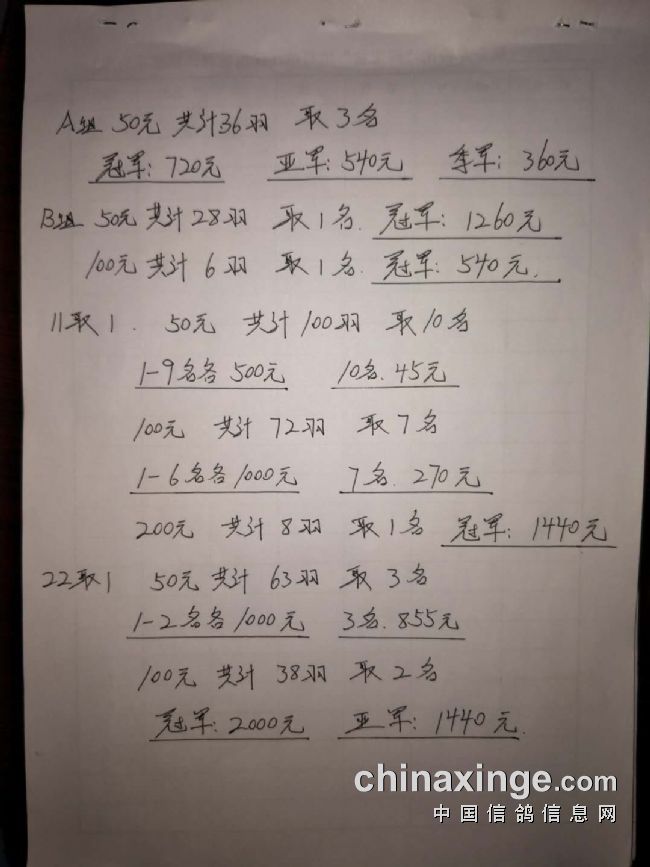 A组 50元 共计36羽 取3名
冠军:720元 亚军:540元 季军:360元
B组 50元 共计28羽 取1名. 冠军:1260元
100元 共计6羽 取1名. 冠军:540元.
11取1. 50元 共计100羽 取10名
1-9名各500元 10名.45元
100元 共计72羽 取7名
1-6名各1000元 7名.270元
200元 共计8羽 取1名 冠军:1440元
22取1 50元 共计63羽 取3名
1-2名各1000元 3名.855元
100元 共计38羽 取2名
冠军:2000元 亚军:1440元.
chinaxinge.com
中国信鸽信息网